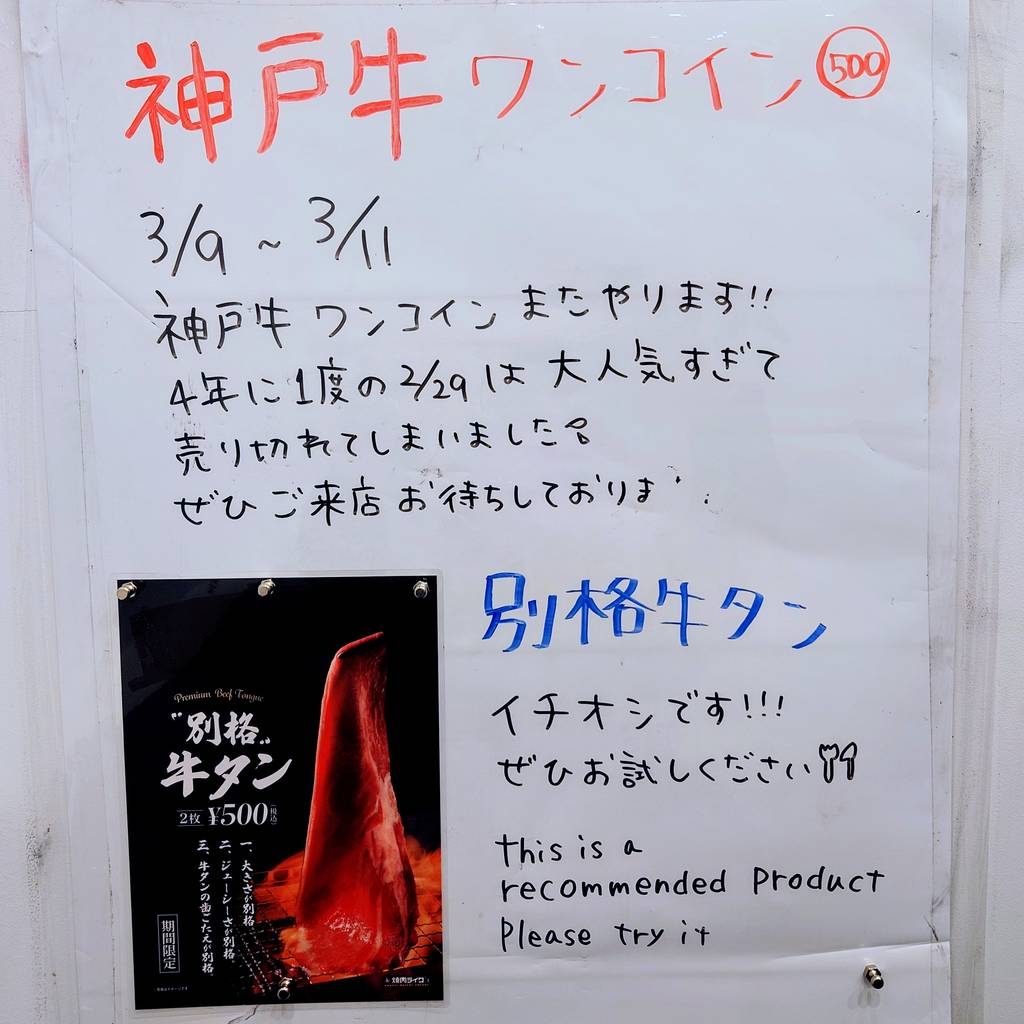 神戸牛 ワンコイン 500
3/9 ~ 3/11
神戸牛 ワンコイン またやります!!
4年に1度の2/29は 大人気すぎて
売り切れてしまいました
ぜひ ご来店 お待ちしておりま
別格牛タン
イチオシです!!!
ぜひお試しください
this is a
recommended product
Please try it
Premium Beef Tongue
“別格”
牛タン
2枚 ¥500(税込)
一、大きさが別格
二、ジューシーさが別格
三、牛タンの歯ごたえが別格。
期間限定
焼肉ライク